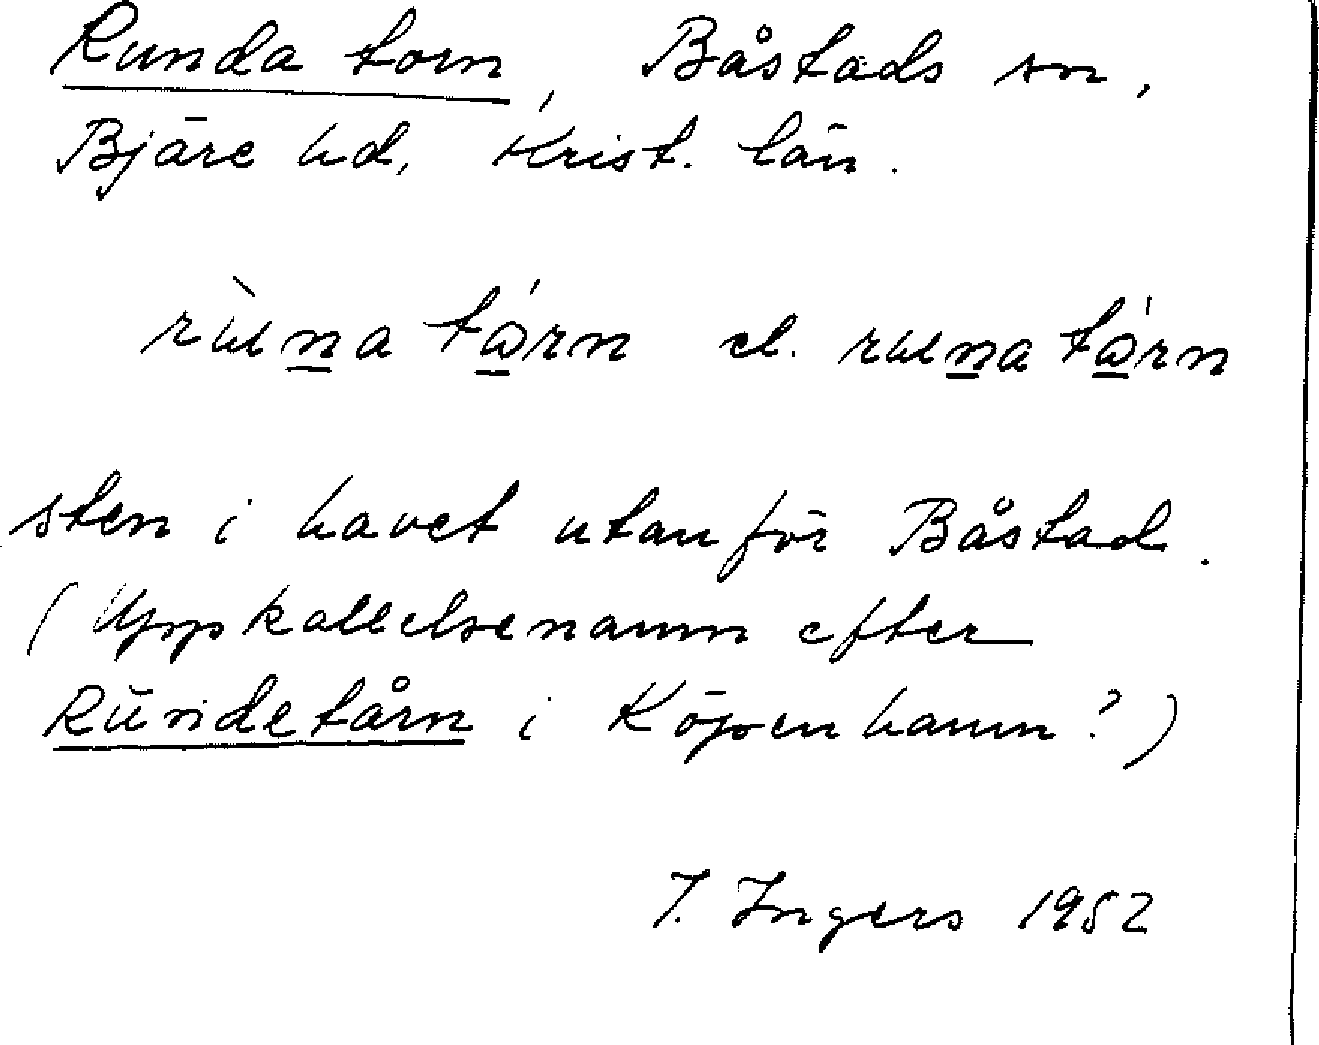 Runda torn, Båstads sn,
Bjäre hd, Krist. län.
el.
sten i havet utanför Båstad.
(Uppkallelsenamn efter
Rundetårn i Köpenhamn?)
I. Ingers 1952